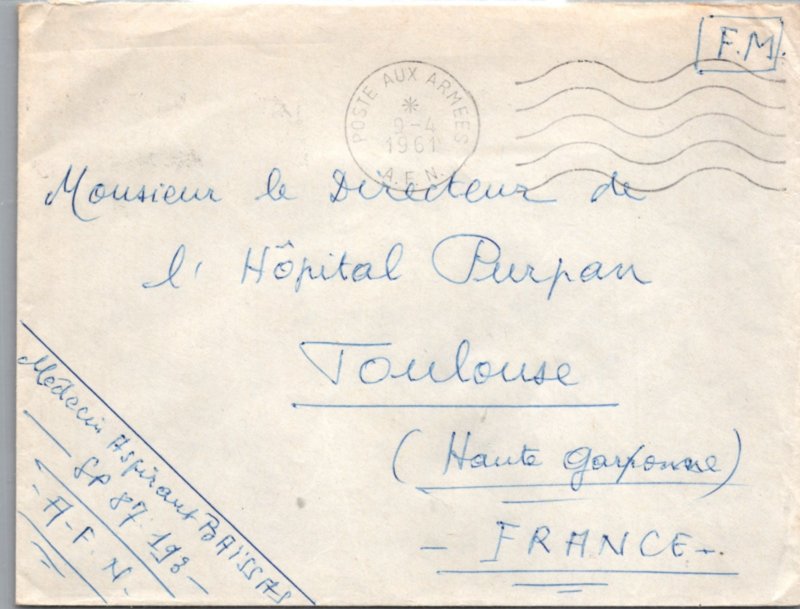 F.M.
POSTE AUX ARMEES
9-4
1961
A.F.N.
Monsieur le Directeur de
l'Hôpital Purpan
Toulouse
(Haute Garonne)
- FRANCE -
Médecin Aspirant BAÏSSAS
SP 87.193
- A-F.N. -